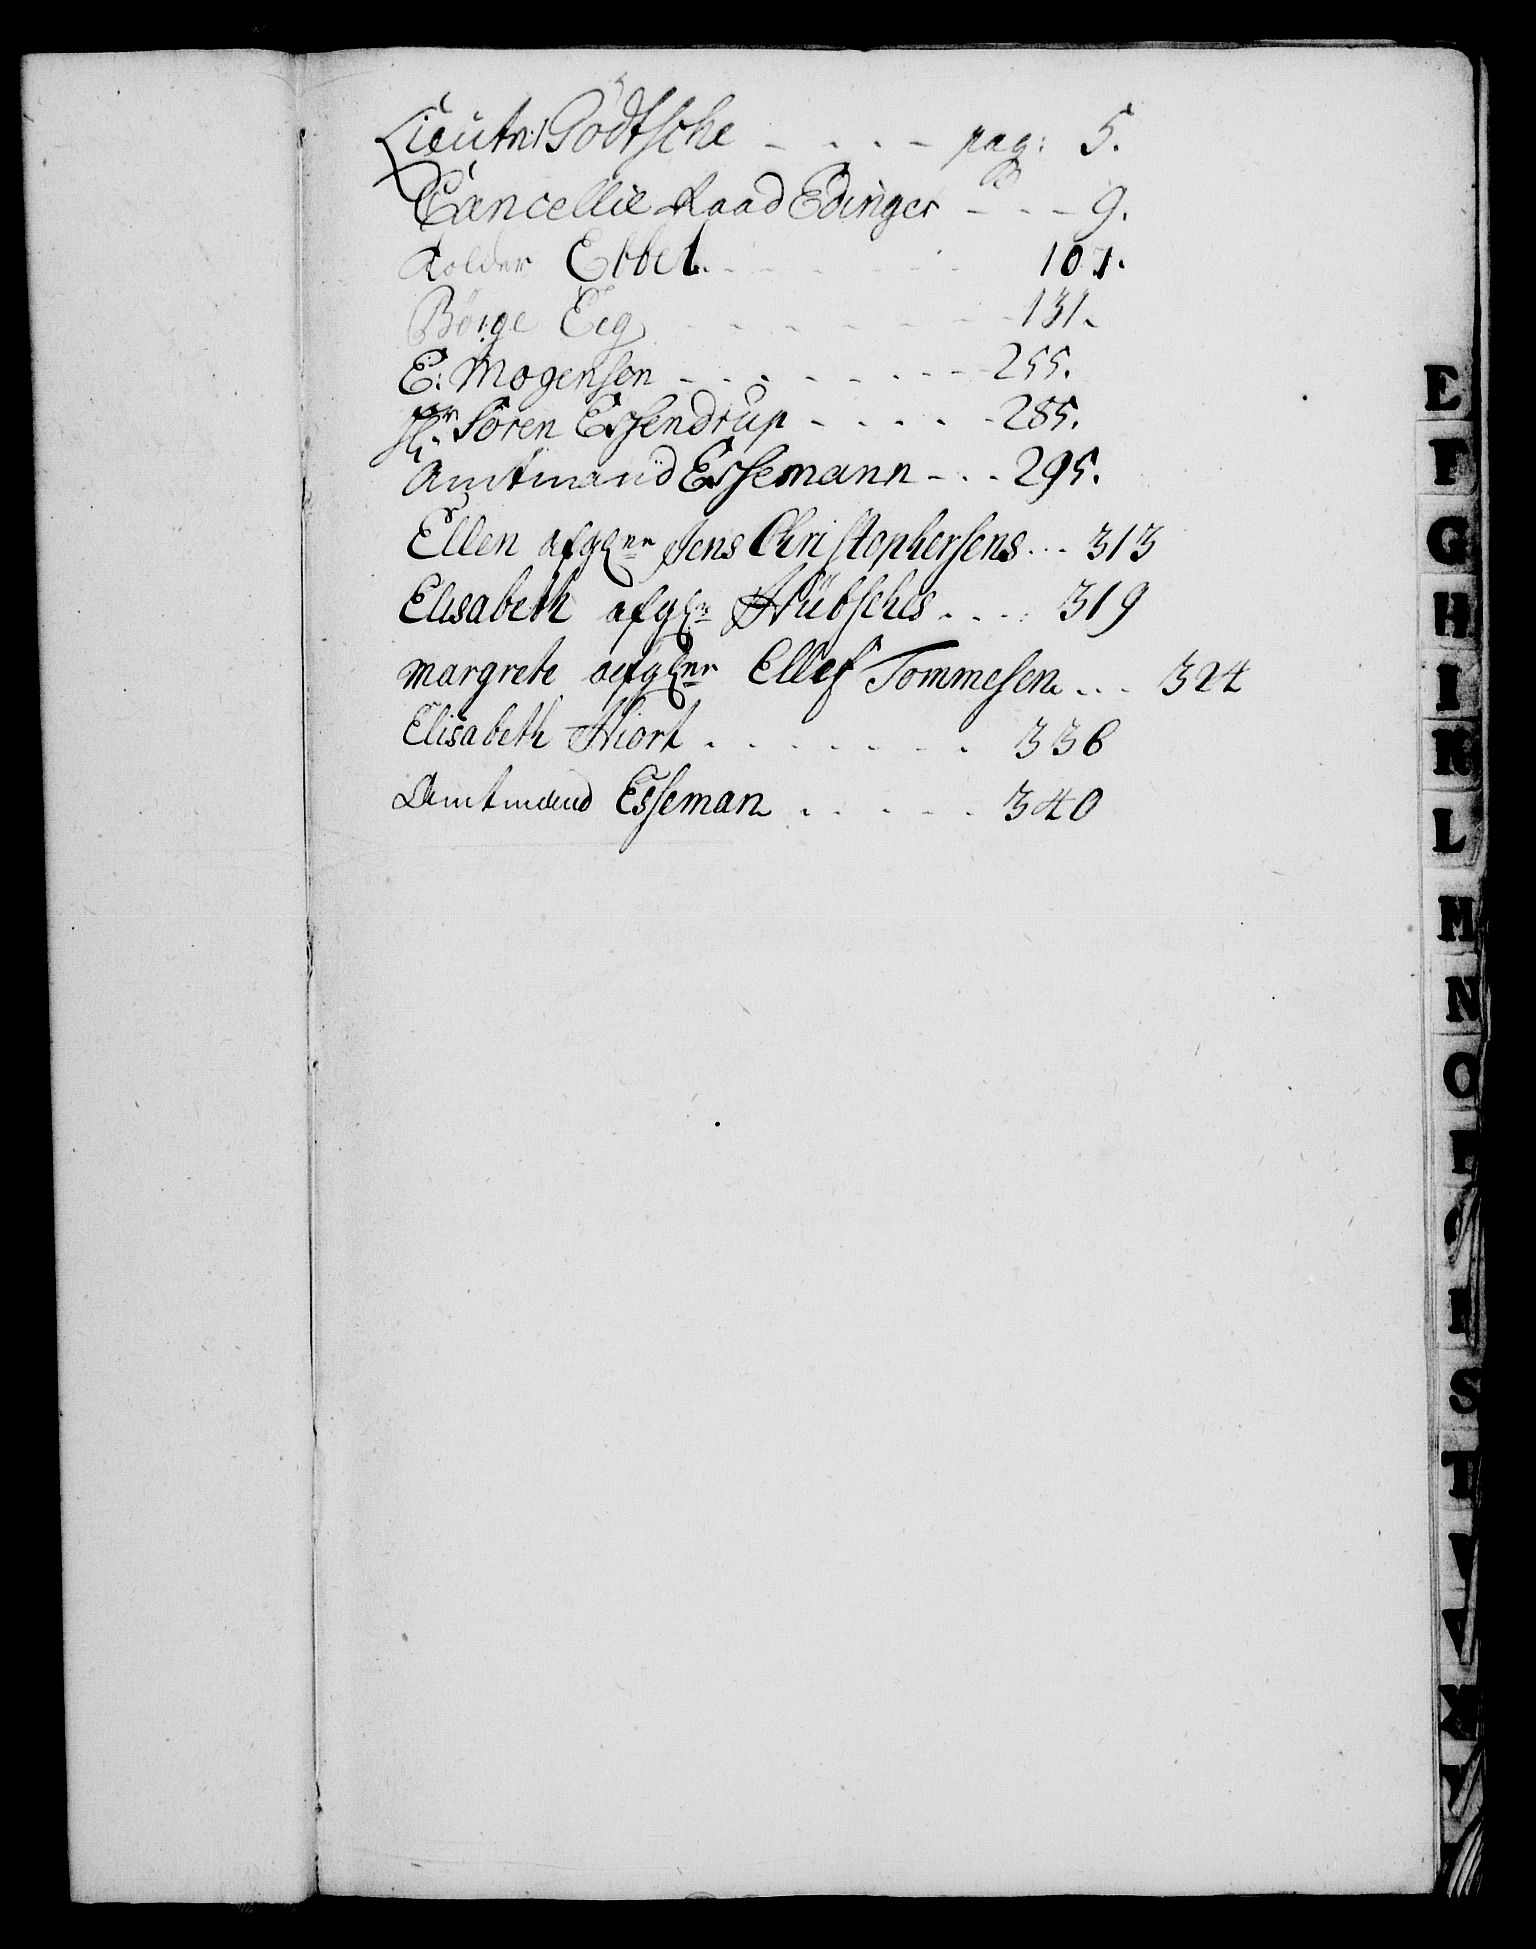 Lieutn: Gödtsche - - - - pag: 5.
Cancellie Raad Edinger - - - 9.
Holder Ebbel. - - - - - - 107.
Börge Eeg - - - - - - - 131.
E: Mogensen - - - - - - - 255.
Hr. Sören Essendrup - - - - - 285.
Amtmand Essemann - - - 295.
Ellen afgln Jens Christophersens... 313
Elisabeth afgln Hübsches .... 319
Margrete afgln Ellef Tommesen... 324
Elisabeth Hiort . . . . . . . 336
Amtmand Esseman . . . . . 340
E
F
G
H
I
K
L
M
N
O
P
Q
R
S
T
V
W
X
Y